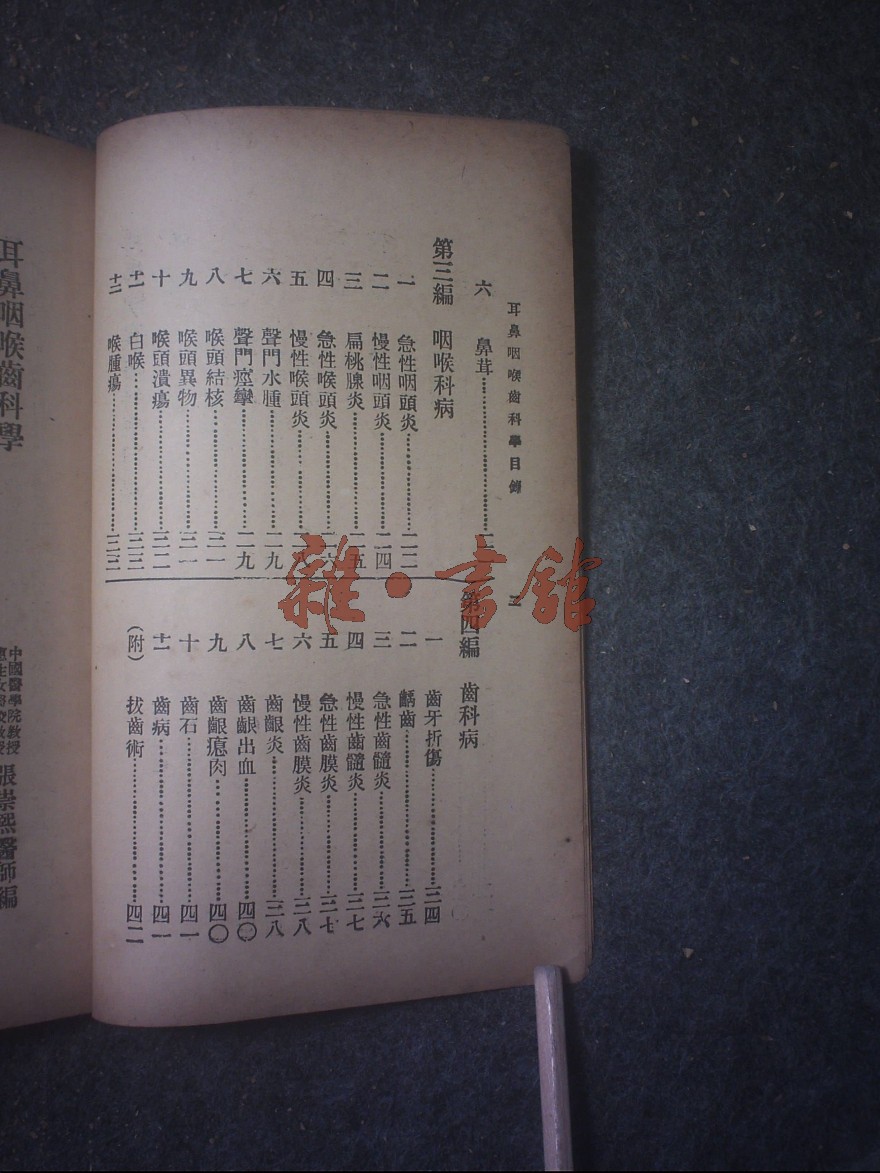 耳鼻咽喉齒科學目錄 二
六 鼻茸
第三編 咽喉科病
一 急性咽頭炎……二二
二 慢性咽頭炎……二四
三 扁桃腺炎……二五
四 急性喉頭炎……二六
五 慢性喉頭炎……二八
六 聲門水腫……二九
七 聲門痙攣……二九
八 喉頭結核……三一
九 喉頭異物……三一
十 喉頭潰瘍……三二
十一 白喉……三三
十二 喉腫瘍……三三
第四編 齒科病
一 齒牙折傷……三四
二 齲齒……三五
三 急性齒髓炎……三六
四 慢性齒髓炎……三七
五 急性齒膜炎……三七
六 慢性齒膜炎……三八
七 齒齦炎……三八
八 齒齦出血……四〇
九 齒齦瘜肉……四〇
十 齒石……四一
十一 齒病……四一
（附） 拔齒術……四二
耳鼻咽喉齒科學
中國醫學院教授
張崇熙醫師編
雜·書館